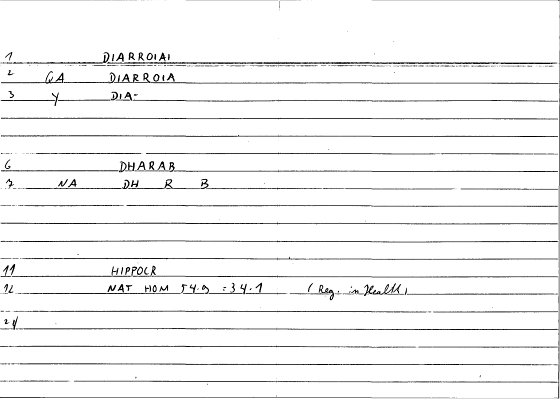 1 DIARROIAI
2 GA DIARROIA
3 Y DIA-
6 DHARAB
7 NA DH R B
11 HIPPOCR
12 NAT HOM 54.9 =34.1 (Reg. in Health)
24